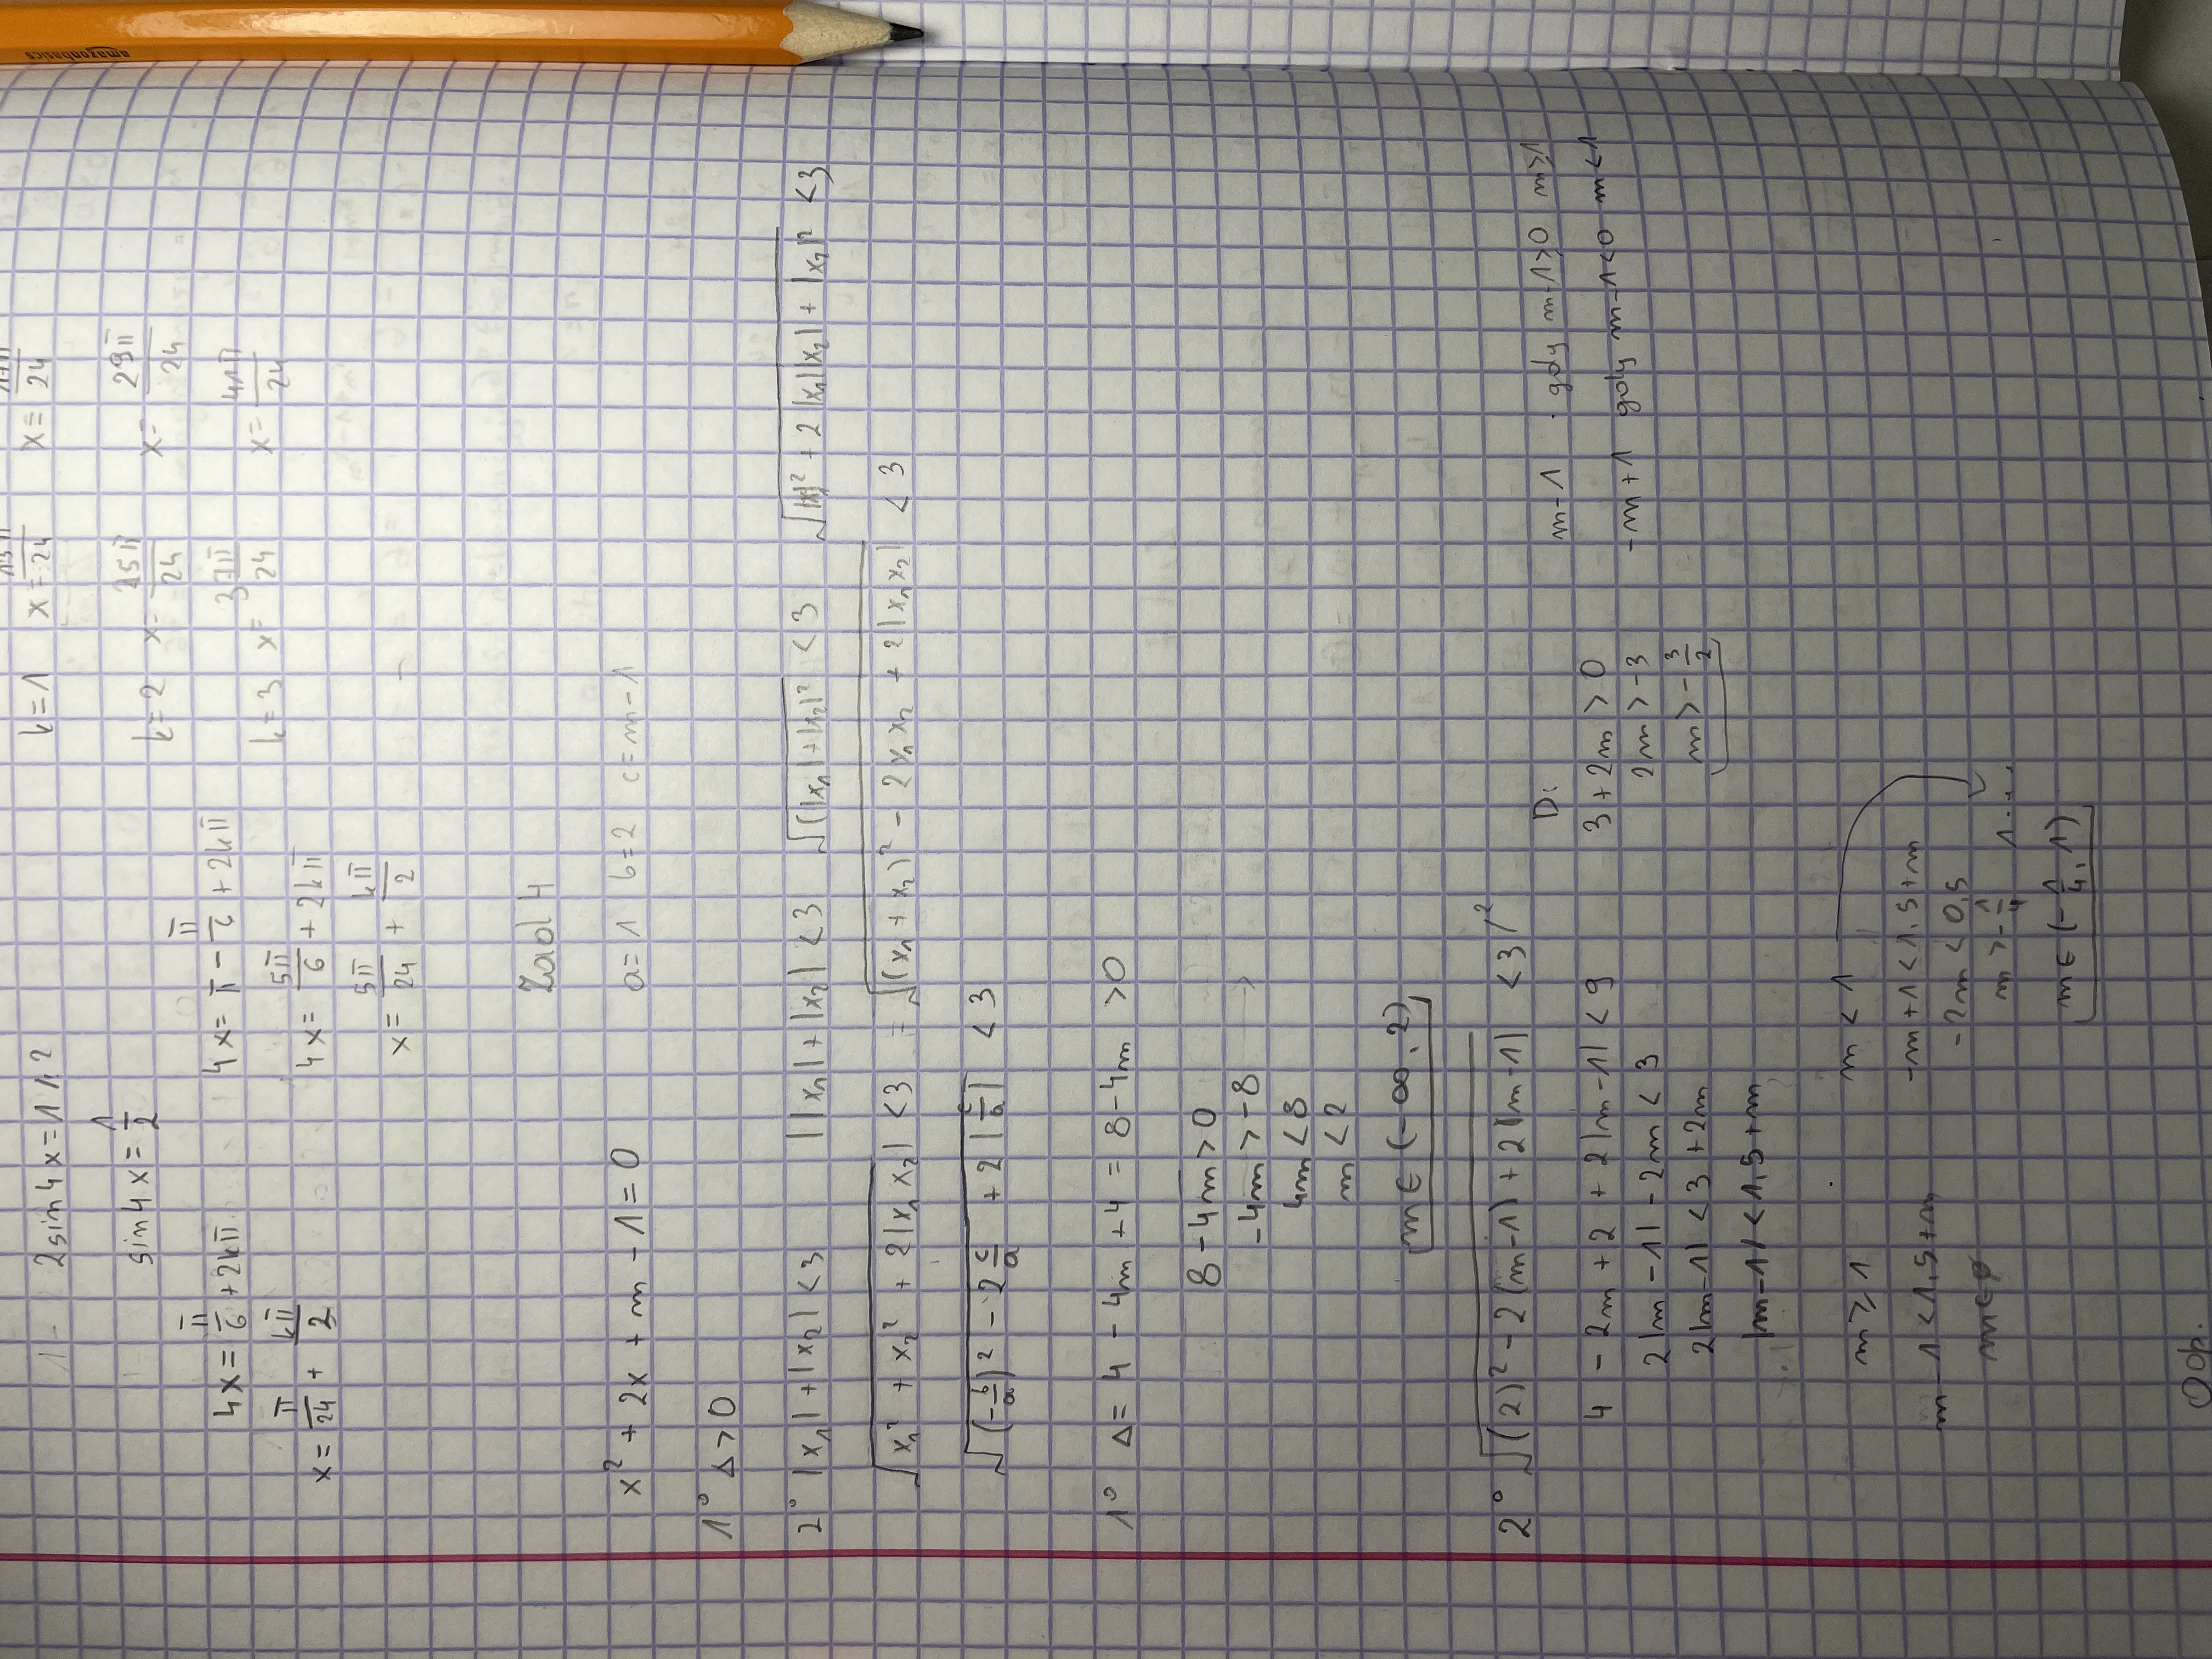 amazonbasics
2sin4x=1 /:2
sin4x=1/2
4x=π/6+2kπ
4x=π-π/6+2kπ
x=π/24+kπ/2
4x=5π/6+2kπ
x=5π/24+kπ/2
k=1 x=13π/24 x=17π/24
k=2 x=25π/24 x=29π/24
k=3 x=37π/24 x=41π/24
Zad 4
x²+2x+m-1=0 a=1 b=2 c=m-1
1° Δ>0
2° |x₁|+|x₂|<3 ||x₁|+|x₂||<3 √(|x₁|+|x₂|)²<3 √|x₁|²+2|x₁||x₂|+|x₂|²<3
√x₁²+x₂²+2|x₁x₂|<3 = √(x₁+x₂)²-2x₁x₂+2|x₁x₂|<3
√(-b/a)²-2c/a+2|c/a| <3
1° Δ=4-4m+4=8-4m>0
8-4m>0
-4m>-8
4m<8
m<2
m∈(-∞,2)
2° √(2)²-2(m-1)+2|m-1| <3 /²
4-2m+2+2|m-1|<9
2|m-1|-2m<3
2|m-1|<3+2m
|m-1|<1,5+m
D:
3+2m>0
2m>-3
m>-3/2
m-1 gdy m-1≥0 m≥1
-m+1 gdy m-1<0 m<1
m≥1
m-1<1,5+m
m∈
m<1
-m+1<1,5+m
-2m<0,5
m>-1/4
m∈(-1/4,1)
Odp.